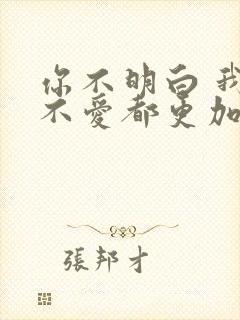 你不明白 我
不爱都更加
張邦才